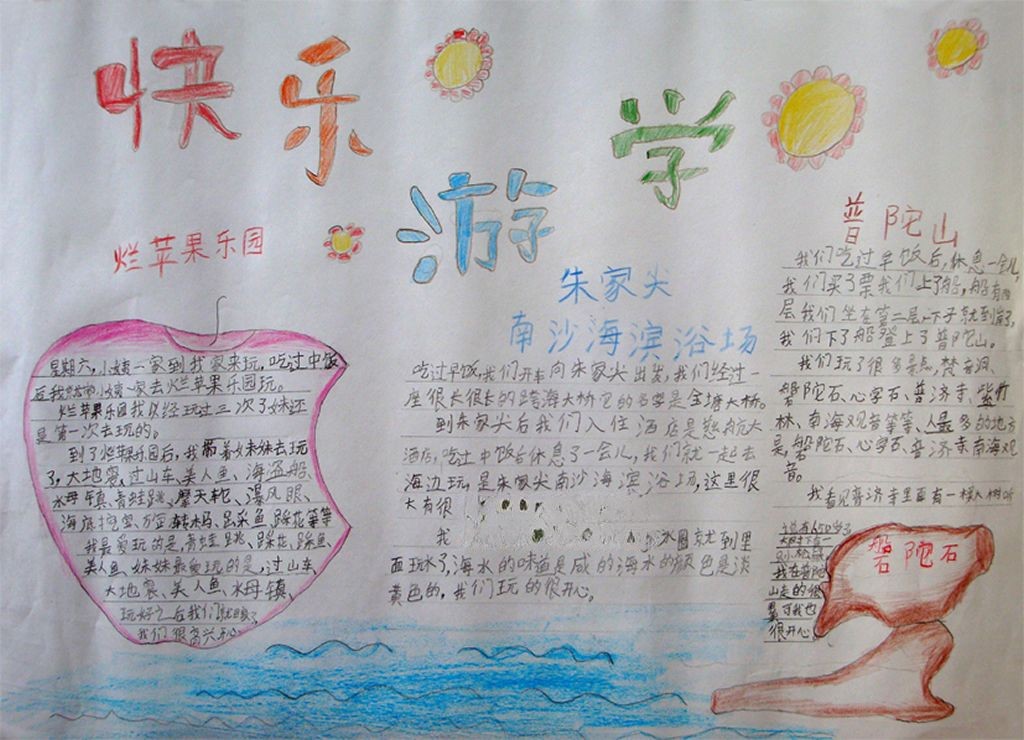 快乐
游学
烂苹果乐园
星期六,小姨一家到我家来玩,吃过中饭
后我 一家去烂苹果乐园玩。
烂苹果乐园我以经玩过三次了妹还
是第一次去玩的。
到了烂苹果乐园后,我带着妹妹去玩
了,大地震,过山车、美人鱼、海盗船、
水母镇、青蛙跳、摩天轮、瀑风眼、
海底 转木马、昆采鱼、踩花等等
我最爱玩的是,青蛙跳、踩花、踩鱼、
美人鱼,妹妹最 玩的是,过山车、
大地震、美人鱼、水母镇,
玩好之后我们就回家了
我们很高兴开心。
朱家尖
南沙海滨浴场
吃过早饭,我们开车向朱家尖出发,我们经过一
座很长很长的跨海大桥它的名字是金塘大桥。
到朱家尖后我们入住酒店是慈航大
酒店,吃过中饭后休息了一会儿,我们就一起去
海边玩,是朱家尖南沙海滨浴场,这里很
大有很
我 泳圈就到里
面玩水了,海水的味道是咸的海水的颜色是淡
黄色的,我们玩的很开心。
普陀山
我们吃过早饭后,休息一会儿,
我们买了票我们上了船,船有两
层我们坐在第二层一下子就到岸了,
我们下了船登上了普陀山。
我们玩了很多景点,梵音洞、
磐陀石、心字石、普济寺、紫竹
林、南海观音等等、人最多的地方
是,磐陀石、心字石、普济寺南海观
音。
我看见普济寺里面有一棵大树听
我在普陀
山走的很
累可我也
很开心。
磐陀石